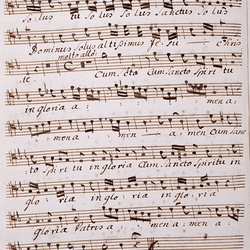 lus tu Solus Solus Sanctus Solus
Dominus Solus altissimus Je su Chris
molto allo:
te. Cum Scto Cum Sancto Spiri tu
in gloria a: men a:
men a: men a: men a:
to Spiri tu in gloria Cum Sancto Spiritu in
glo: ria in gloria in gloria
gloria Patris a men a: men a: